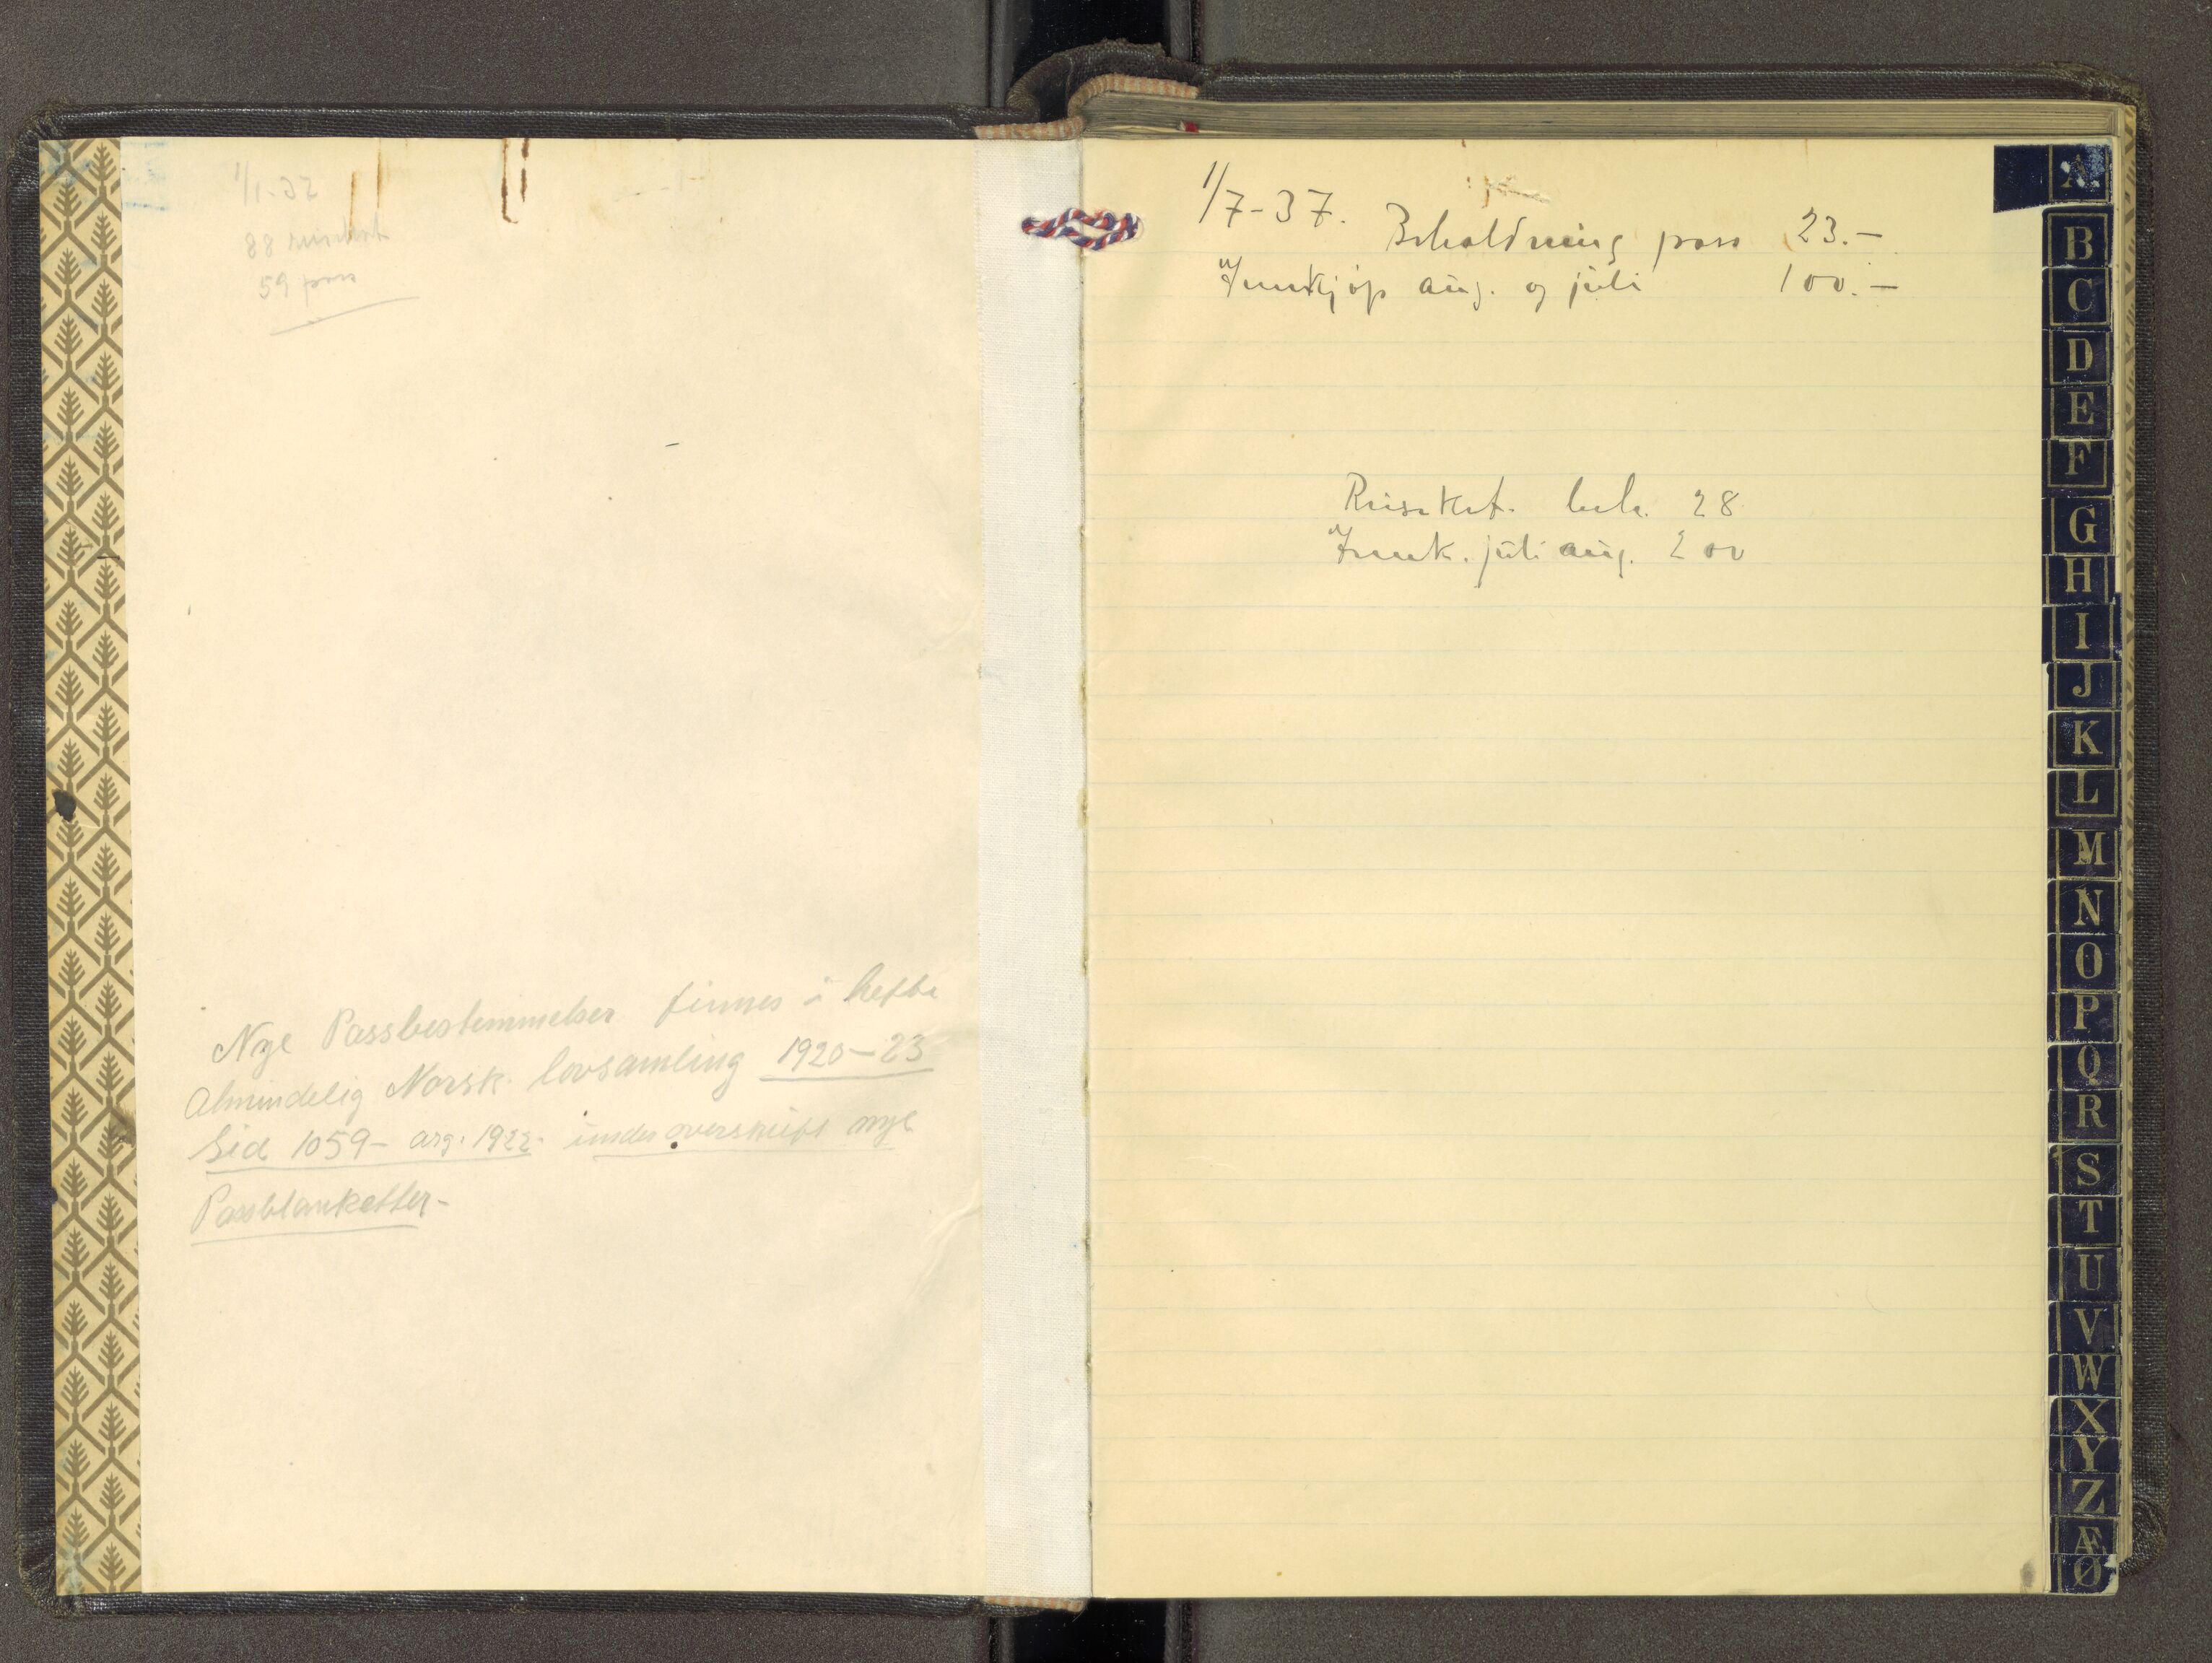 1/1-32
88 reisekort
59 pass
Nye Passbestemmelser finnes i hefte
Almindelig Norsk. lovsamling 1920-23
Sid 1059- årg. 1922. under overskrift nye
Passblanketter-
1/7-37. Beholdning pass 23.-
Innkjøp aug. og juli 100.-
Reisekort. beh. 28
Innk. juli aug. 200
A
B
C
D
E
F
G
H
I
J
K
L
M
N
O
P
Q
R
S
T
U
V
W
X
Y
Z
Æ
Ø